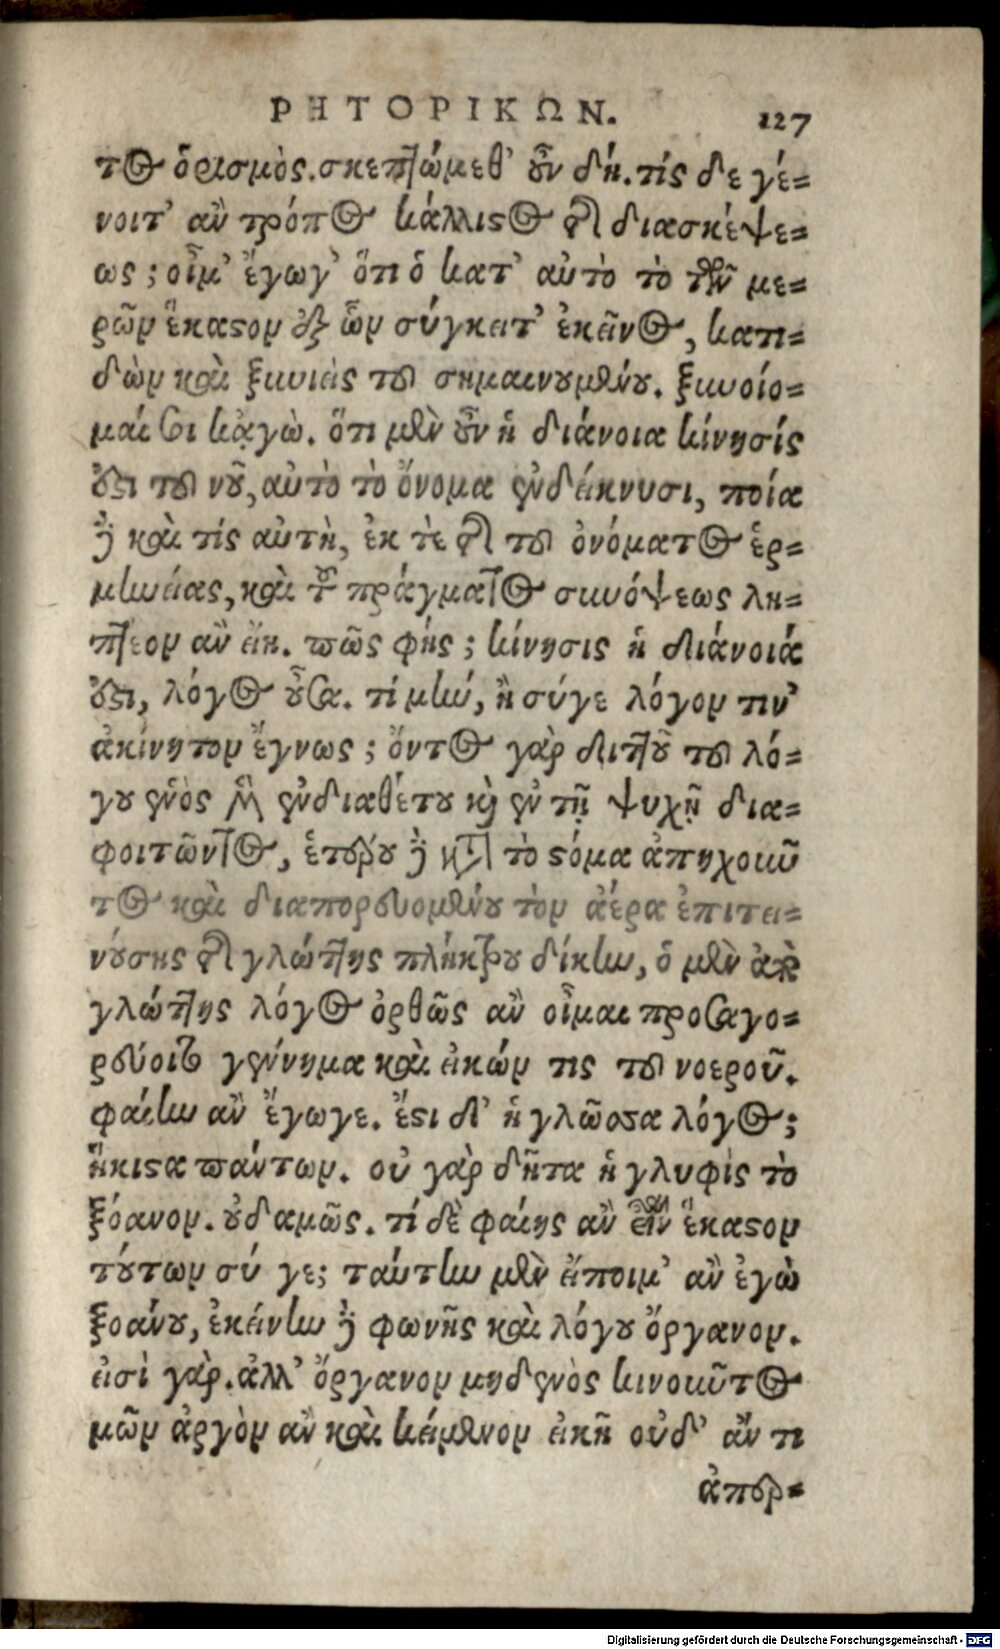 ΡΗΤΟΡΙΚΩΝ. 127
τος ὁρισμὸς. σκεπτώμεθ' οὖν δή. τίς δε γέ=
νοιτ' ἂν τρόπος κάλλιστος τῆς διασκέψε=
ως; οἶμ' ἔγωγ' ὅτι ὁ κατ' αὐτὸ τὸ τῶν με=
ρῶν ἕκαστον ἐξ ὧν σύγκειτ' ἐκεῖνος, κατι=
δὼν καὶ ξυνιεὶς τοῦ σημαινουμένου. ξυνοίο=
μαί σοι κᾀγὼ. ὅτι μὲν οὖν ἡ διάνοια κίνησίς
ἐστι τοῦ νοῦ, αὐτὸ τὸ ὄνομα ἐνδείκνυσι, ποία
δὲ καὶ τίς αὐτὴ, ἐκ τὲ τῆς τοῦ ὀνόματος ἑρ=
μηνείας, καὶ τοῦ πράγματος συνόψεως λη=
πτέον ἂν εἴη. πῶς φῄς; κίνησις ἡ διάνοιά
ἐστι, λόγος οὖσα. τί μήν, ἢ σύγε λόγον τιν'
ἀκίνητον ἔγνως; ὄντος γὰρ διττοῦ τοῦ λό=
γου ἑνὸς μὲν ἐνδιαθέτου καὶ ἐν τῇ ψυχῇ δια=
φοιτῶντος, ἑτέρου δὲ κατὰ τὸ στόμα ἀπηχουμέν
τος καὶ διαπορευομένου τὸν ἀέρα ἐπιτει=
νούσης τῆς γλώττης πλήκτρου δίκην, ὁ μὲν ἀπὸ
γλώττης λόγος ὀρθῶς ἂν οἶμαι προσαγο=
ρεύοιτο γέννημα καὶ εἰκών τις τοῦ νοεροῦ.
φαίην ἂν ἔγωγε. ἔστι δ' ἡ γλῶσσα λόγος;
ἥκιστα πάντων. οὐ γὰρ δῆτα ἡ γλυφὶς τὸ
ξόανον. οὐδαμῶς. τί δὲ φαίης ἂν εἶναι ἕκαστον
τούτων σύ γε; ταύτην μὲν εἴποιμ' ἂν ἐγὼ
ξοάνου, ἐκείνην δὲ φωνῆς καὶ λόγου ὄργανον.
εἰσὶ γὰρ. ἀλλ' ὄργανον μηδενὸς κινοῦντος
μῶν ἀργὸν ἂν καὶ κείμενον εἰκῆ οὐδ' ἄν τι
ἀπερ=
Digitalisierung gefördert durch die Deutsche Forschungsgemeinschaft - DFG